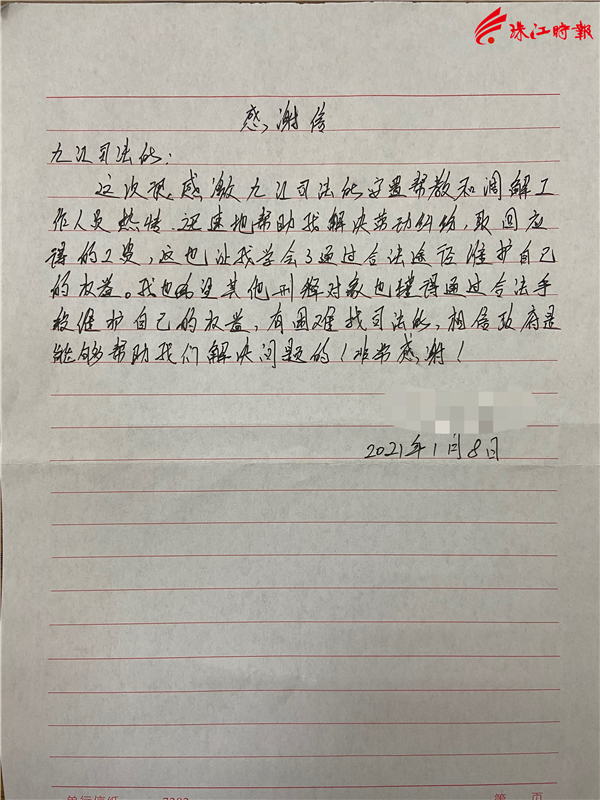 珠江时报
感谢信
九江司法所：
这次很感激九江司法所安置帮教和调解工
作人员热情、迅速地帮助我解决劳动纠纷，取回应
得的工资，这也让我学会了通过合法途径维护自己
的权益。我也希望其他刑释对象也懂得通过合法手
段维护自己的权益，有困难找司法所，相信政府是
能够帮助我们解决问题的！非常感谢！
2021年1月8日
单行信纸
第 页